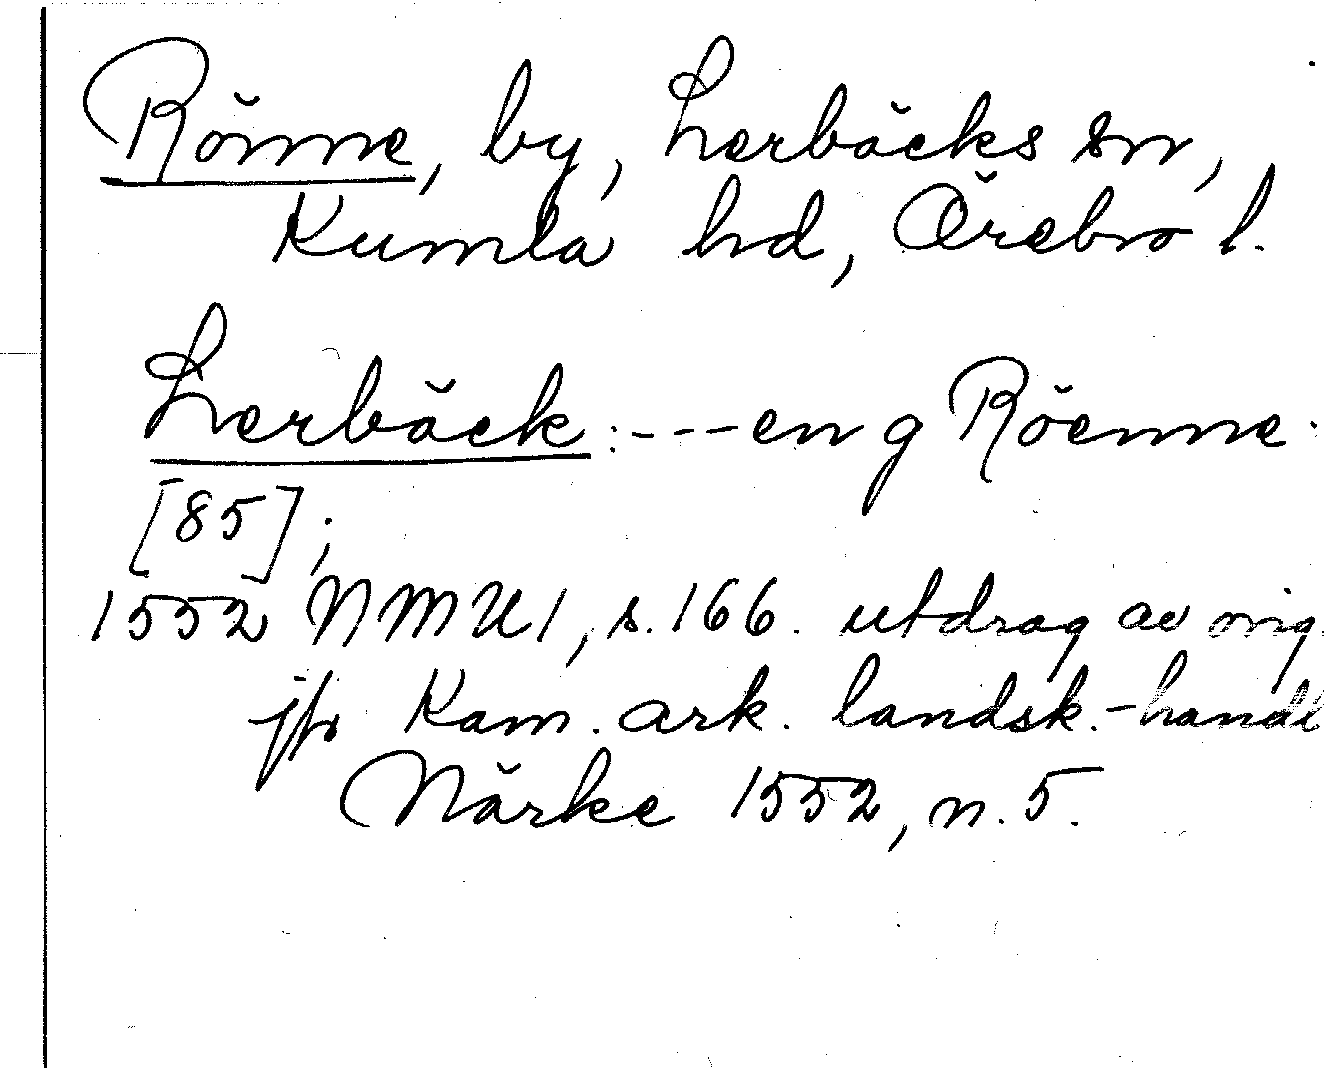 Rönne, by, Lerbäcks sn,
Kumla hd, Örebro l.
Lerbäck: --- en g Röenne
[85];
1552 NMU1, s. 166. utdrag av orig.
jfr Kam. ark. landsk.-handl
Närke 1552, n. 5.